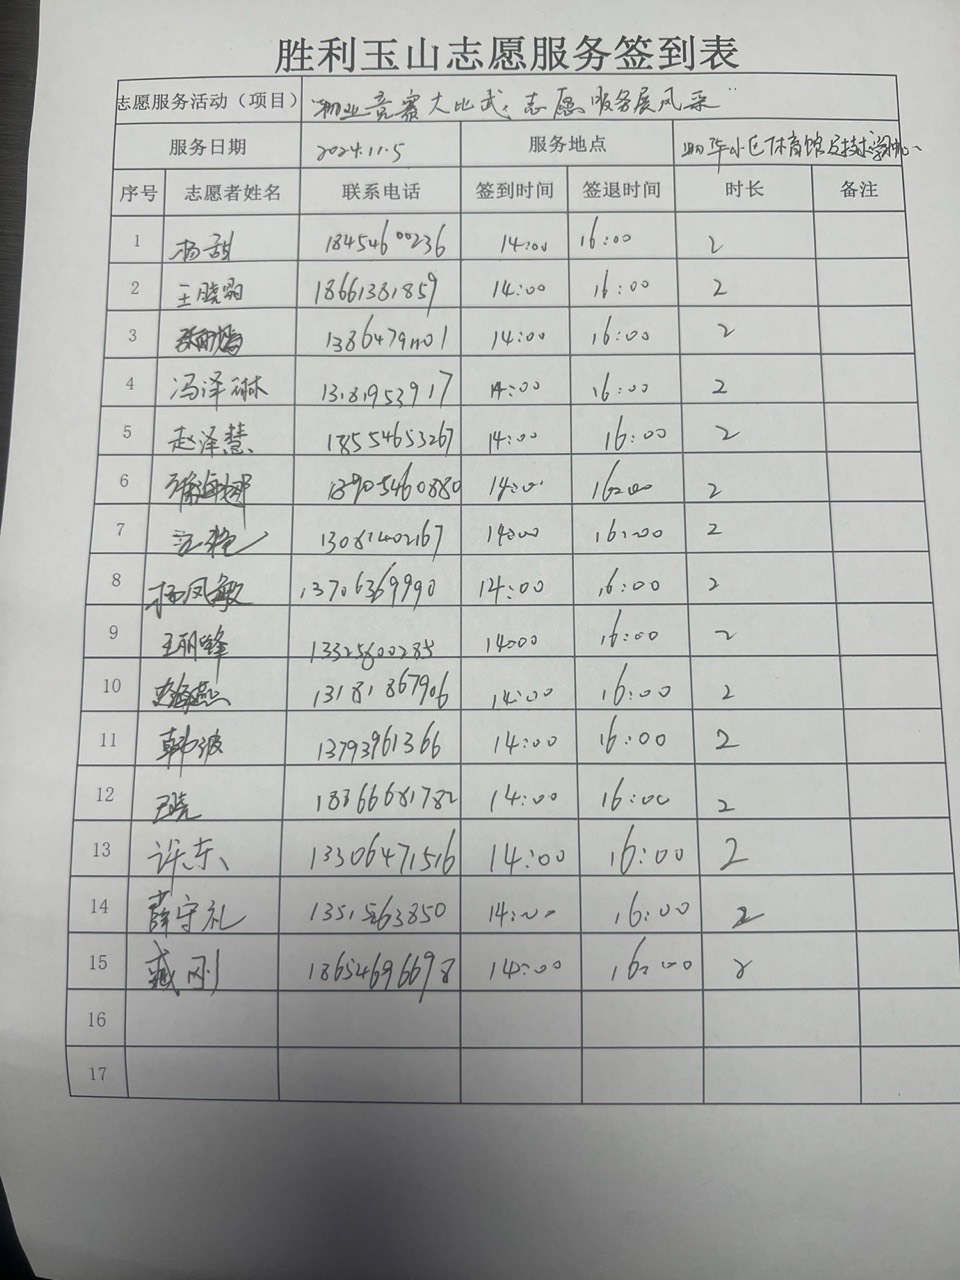 胜利玉山志愿服务签到表
志愿服务活动（项目） “物业竞赛大比武，志愿服务展风采”
服务日期 2024.11.5 服务地点 小区体育馆及技术
序号 志愿者姓名 联系电话 签到时间 签退时间 时长 备注
1 杨甜 18454600236 14:00 16:00 2
2 王晓 18661381859 14:00 16:00 2
3 14:00 16:00 2
4 冯泽琳 13181953917 14:00 16:00 2
5 赵泽慧 18554653267 14:00 16:00 2
6 14:00 16:00 2
7 13081402167 14:00 16:00 2
8 杨凤敏 13706369990 14:00 16:00 2
9 王丽峰 13325600285 14:00 16:00 2
10 13181867906 14:00 16:00 2
11 韩波 13793961366 14:00 16:00 2
12 王晓 18366681782 14:00 16:00 2
13 许东 13306471516 14:00 16:00 2
14 薛守礼 14:00 16:00 2
15 臧刚 18654696698 14:00 16:00 2
16
17